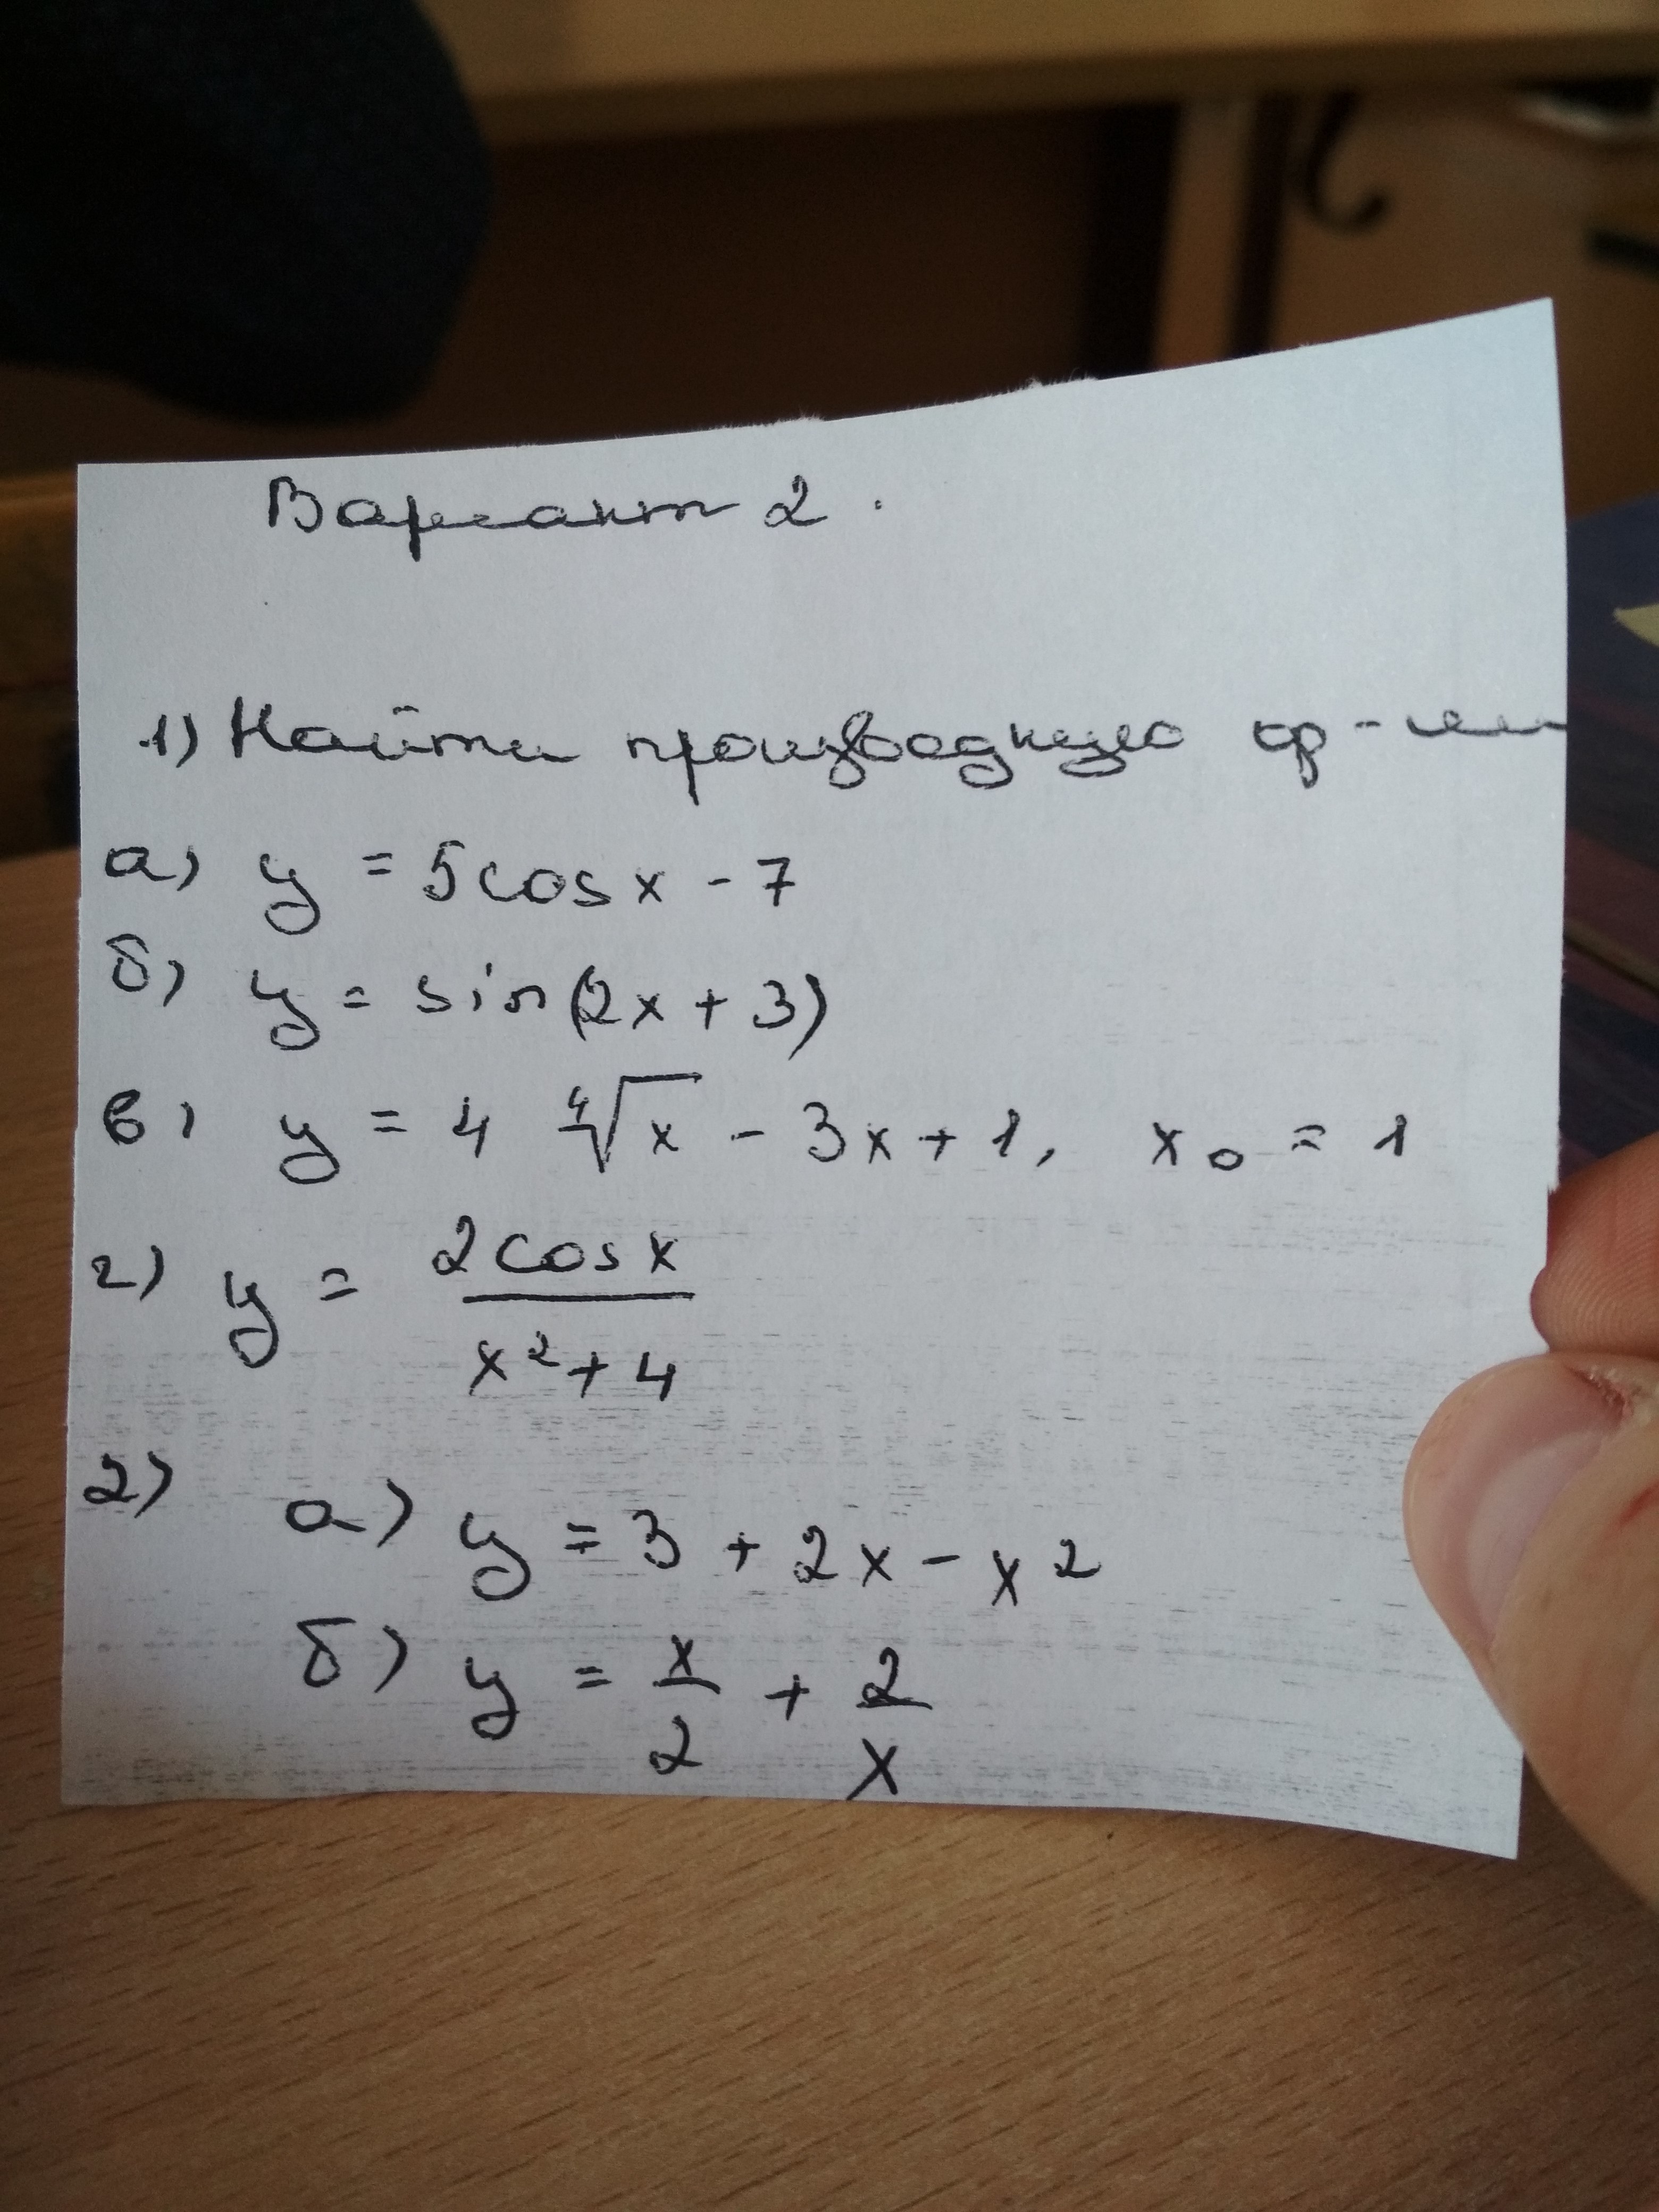 Вариант 2.
1) Найти производную ф-ции
а) y = 5cosx - 7
б) y = sin(2x + 3)
в) y = 4 ∜x - 3x + 1, x₀ = 1
г) y = 2cosx / x² + 4
2) а) y = 3 + 2x - x²
б) y = x/2 + 2/x